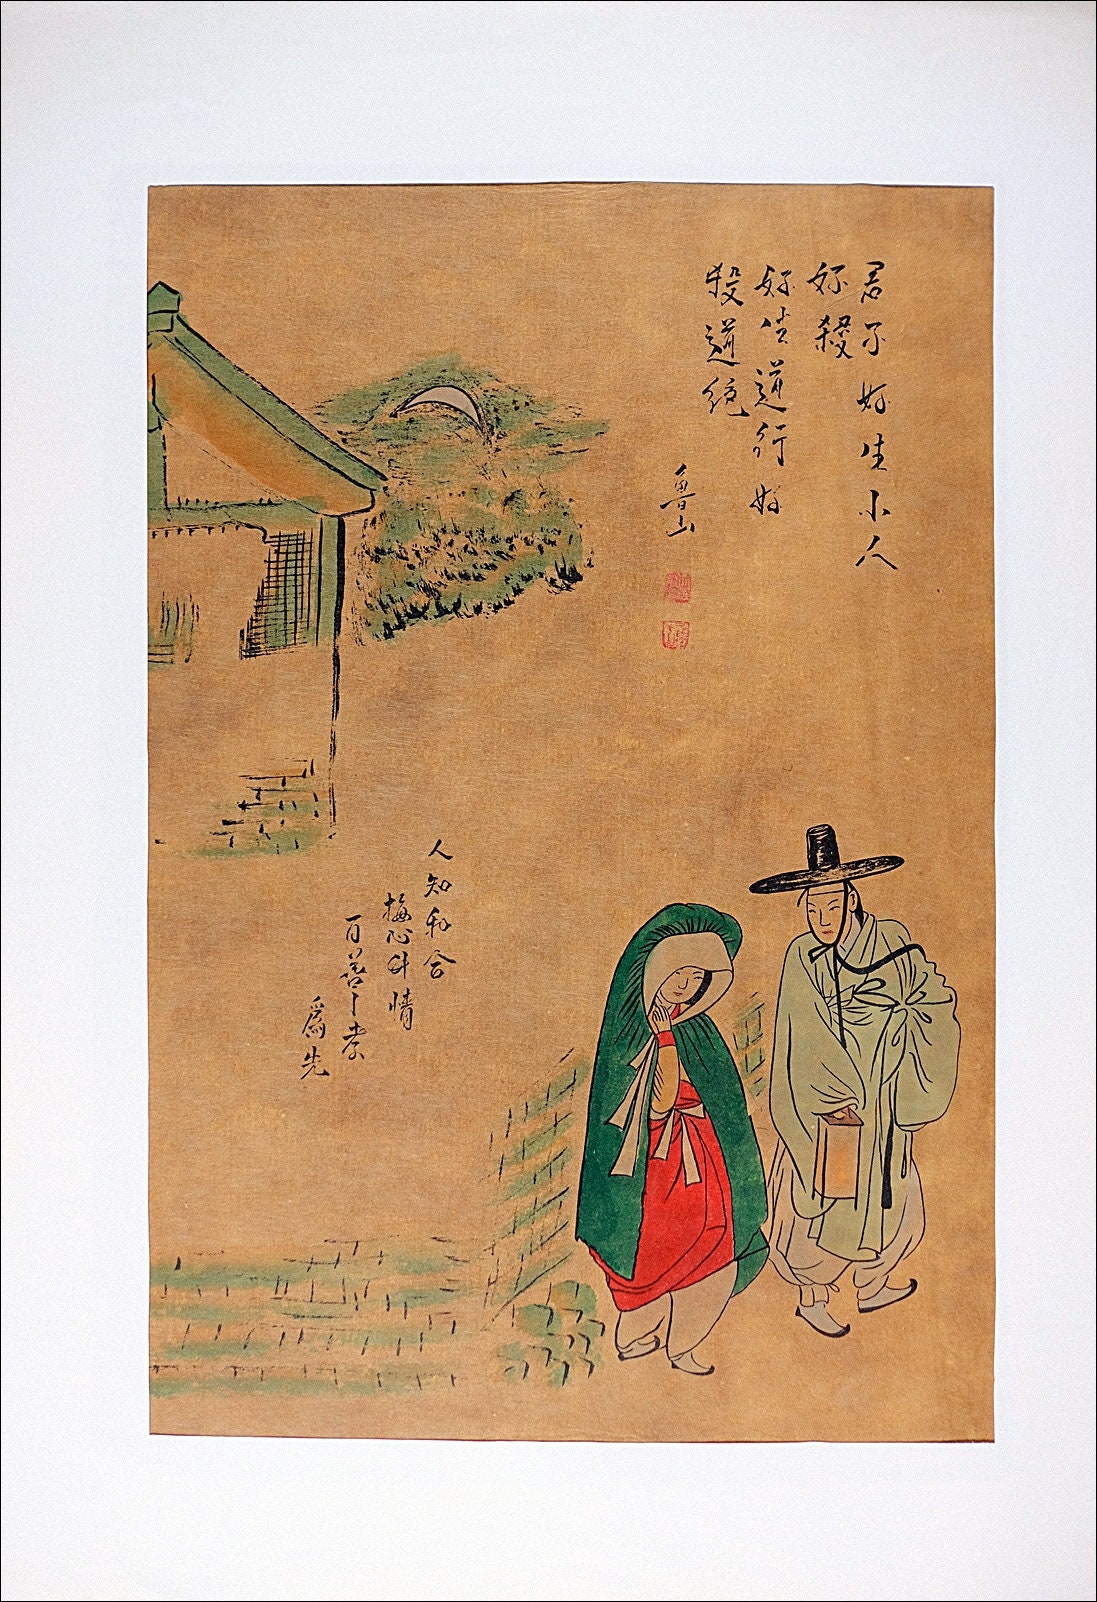 君子好生小人
好殺
好生道行好
殺道絶
魯山
人知和合
梅心竹情
百善孝
爲先